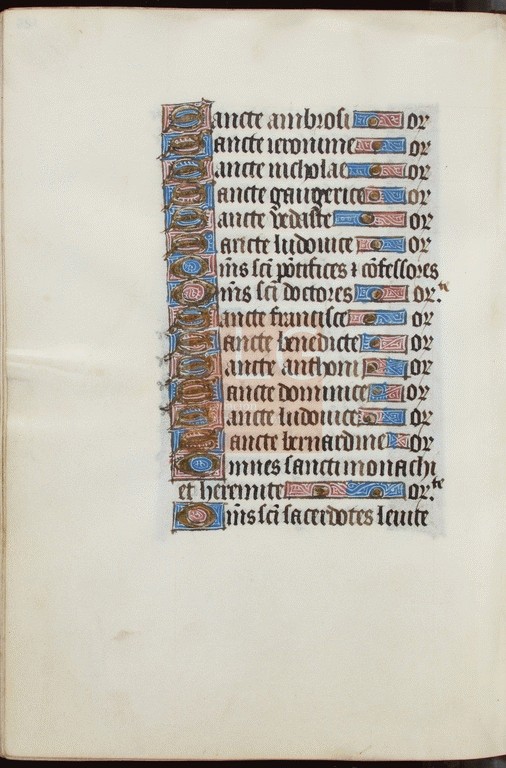 Sancte ambrosi or
Sancte ieronime or
Sancte nicholae or
Sancte gaugerice or
Sancte vedaste or
Sancte ludovice or
Om̅s sc̅i po̅tifices ⁊ co̅fessores
Om̅s sc̅i doctores or.te
Sancte francisce or
Sancte benedicte or
Sancte anthoni or
Sancte dominice or
Sancte ludovice or
Sancte bernardine or
Omnes sancti monachi
et heremite or.te
Om̅s sc̅i sacerdotes levite